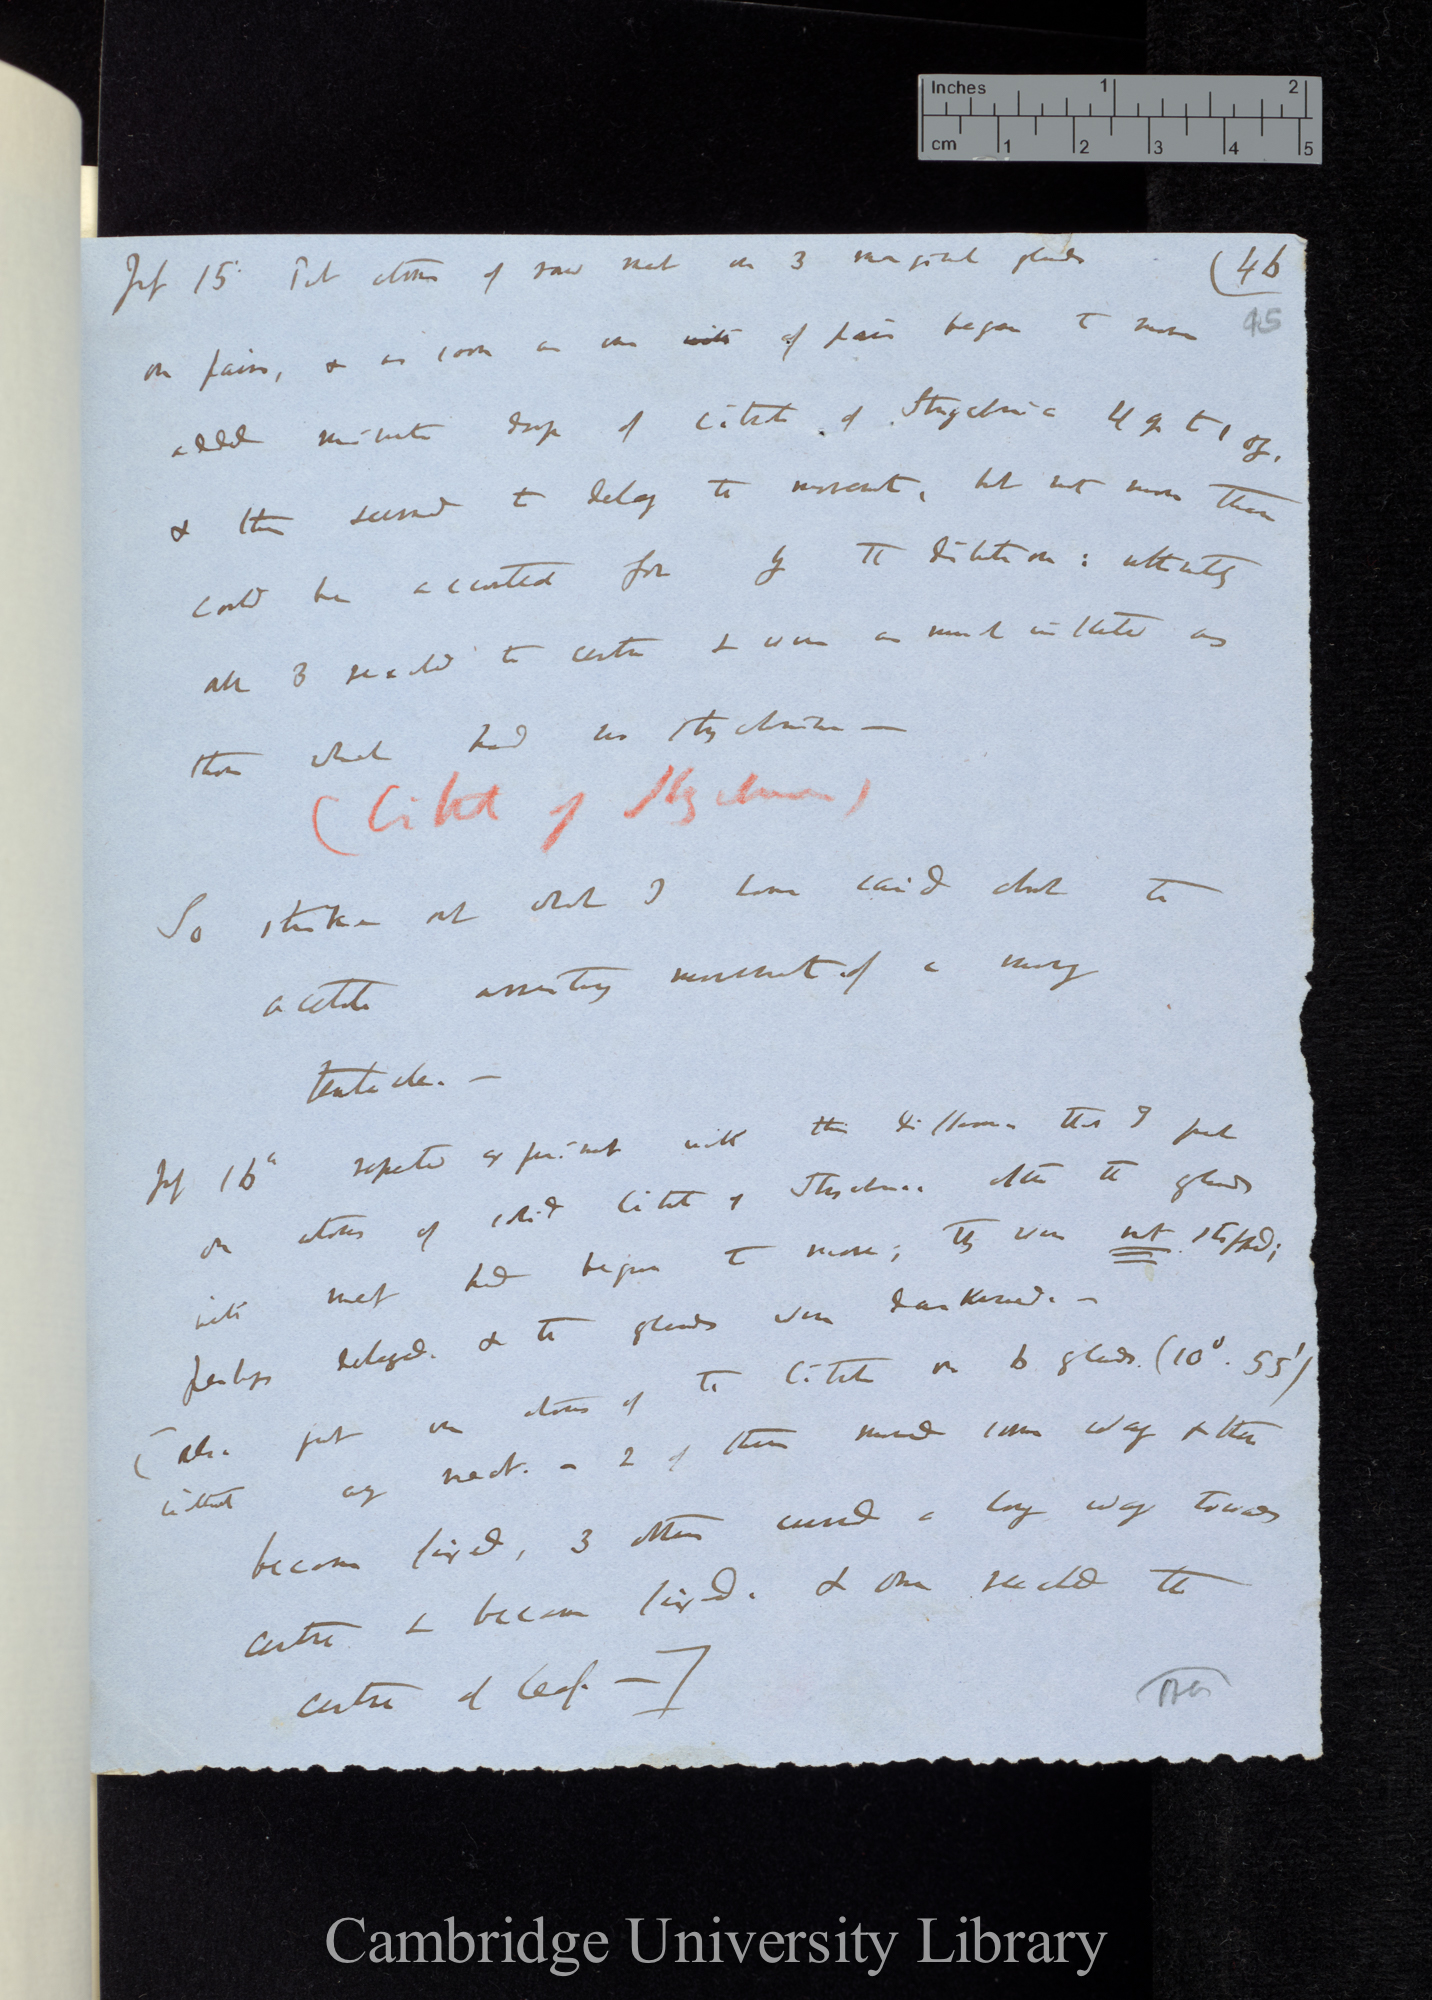 Inches 1 2
cm 1 2 3 4 5
July 15. Put atoms of raw meat on 3 marginal glands (46
45
on pairs, & as soon as one of pair began to move
added minute drop of Citrate of Strychnia 4 gr to 1 oz,
& this seemed to delay the movement, but not more than
could be accounted for by the dilution: ultimately
all 3 reached the centre & were as much inflected as
those which had no strychnine —
(Citrate of Strychnine)
So strike out what I have said about the
acetate arresting movement of a moving
tentacle. —
July 16th repeated experiment with this difference that I put
on atoms of solid Citrate of Strychnine after the glands
with meat had begun to move; they were not stopped;
perhaps delayed. & the glands were darkened. —
(Also put on atoms of the Citrate on 6 glands. (10°. 55')
without any meat. — 2 of them moved some way & then
became fixed, 3 others moved a long way towards
centre & became fixed. & one reached the
centre of leaf. —]
Cambridge University Library